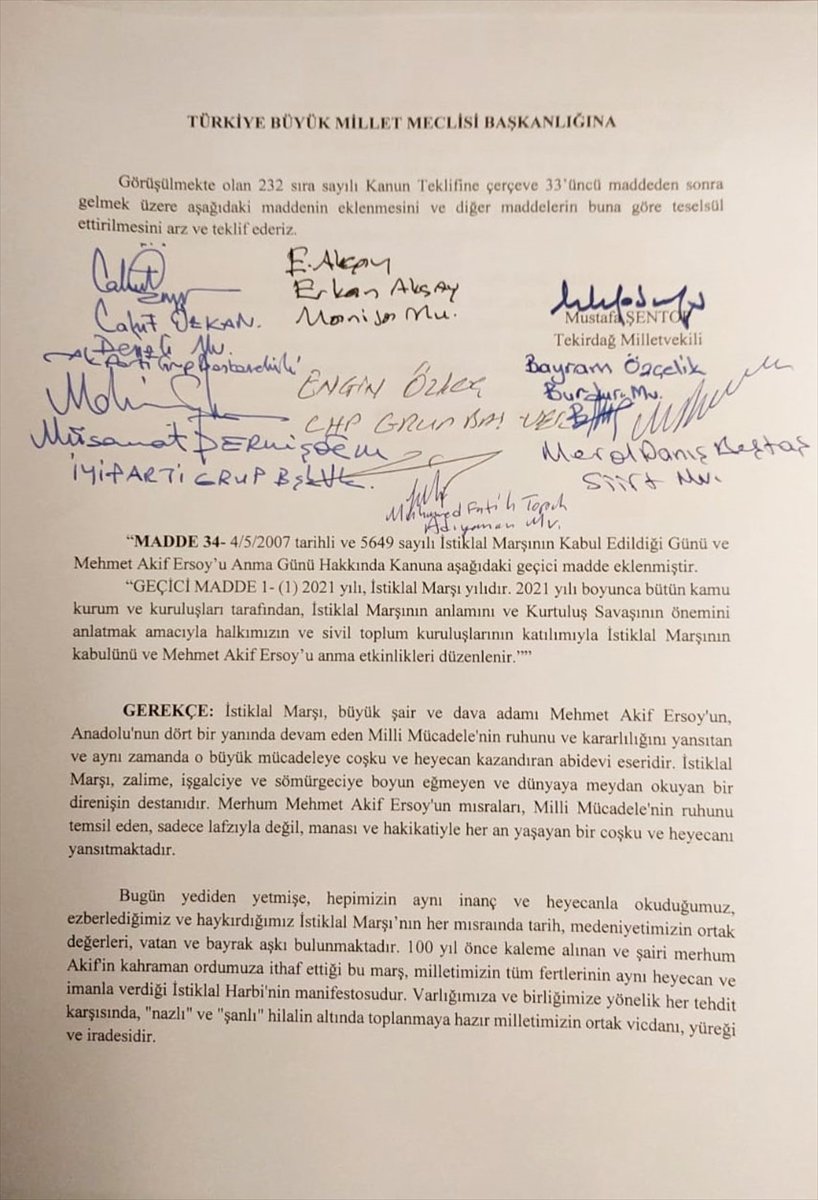 TÜRKİYE BÜYÜK MİLLET MECLİSİ BAŞKANLIĞINA
Görüşülmekte olan 232 sıra sayılı Kanun Teklifine çerçeve 33'üncü maddeden sonra
gelmek üzere aşağıdaki maddenin eklenmesini ve diğer maddelerin buna göre teselsül
ettirilmesini arz ve teklif ederiz.
Cahit
E. Akçay
Erkan Akçay
Manisa Mv.
Cahit ÖZKAN.
Denizli Mv.
AK Parti Grup Başkanvekili
Mustafa ŞENTOP
Tekirdağ Milletvekili
Bayram Özçelik
Burdur Mv.
ENGİN ÖZKOÇ
CHP GRUP BAŞ VEK
Müsavat DERVİŞOĞLU
İYİ PARTİ GRUP BŞK.VK.
Meral Danış Beştaş
Siirt Mv.
Muhammed Fatih Toprak
Adıyaman Mv.
“MADDE 34- 4/5/2007 tarihli ve 5649 sayılı İstiklal Marşının Kabul Edildiği Günü ve
Mehmet Akif Ersoy’u Anma Günü Hakkında Kanuna aşağıdaki geçici madde eklenmiştir.
“GEÇİCİ MADDE 1- (1) 2021 yılı, İstiklal Marşı yılıdır. 2021 yılı boyunca bütün kamu
kurum ve kuruluşları tarafından, İstiklal Marşının anlamını ve Kurtuluş Savaşının önemini
anlatmak amacıyla halkımızın ve sivil toplum kuruluşlarının katılımıyla İstiklal Marşının
kabulünü ve Mehmet Akif Ersoy’u anma etkinlikleri düzenlenir.””
GEREKÇE: İstiklal Marşı, büyük şair ve dava adamı Mehmet Akif Ersoy'un,
Anadolu'nun dört bir yanında devam eden Milli Mücadele'nin ruhunu ve kararlılığını yansıtan
ve aynı zamanda o büyük mücadeleye coşku ve heyecan kazandıran abidevi eseridir. İstiklal
Marşı, zalime, işgalciye ve sömürgeciye boyun eğmeyen ve dünyaya meydan okuyan bir
direnişin destanıdır. Merhum Mehmet Akif Ersoy'un mısraları, Milli Mücadele'nin ruhunu
temsil eden, sadece lafzıyla değil, manası ve hakikatiyle her an yaşayan bir coşku ve heyecanı
yansıtmaktadır.
Bugün yediden yetmişe, hepimizin aynı inanç ve heyecanla okuduğumuz,
ezberlediğimiz ve haykırdığımız İstiklal Marşı’nın her mısraında tarih, medeniyetimizin ortak
değerleri, vatan ve bayrak aşkı bulunmaktadır. 100 yıl önce kaleme alınan ve şairi merhum
Akif'in kahraman ordumuza ithaf ettiği bu marş, milletimizin tüm fertlerinin aynı heyecan ve
imanla verdiği İstiklal Harbi'nin manifestosudur. Varlığımıza ve birliğimize yönelik her tehdit
karşısında, "nazlı" ve "şanlı" hilalin altında toplanmaya hazır milletimizin ortak vicdanı, yüreği
ve iradesidir.